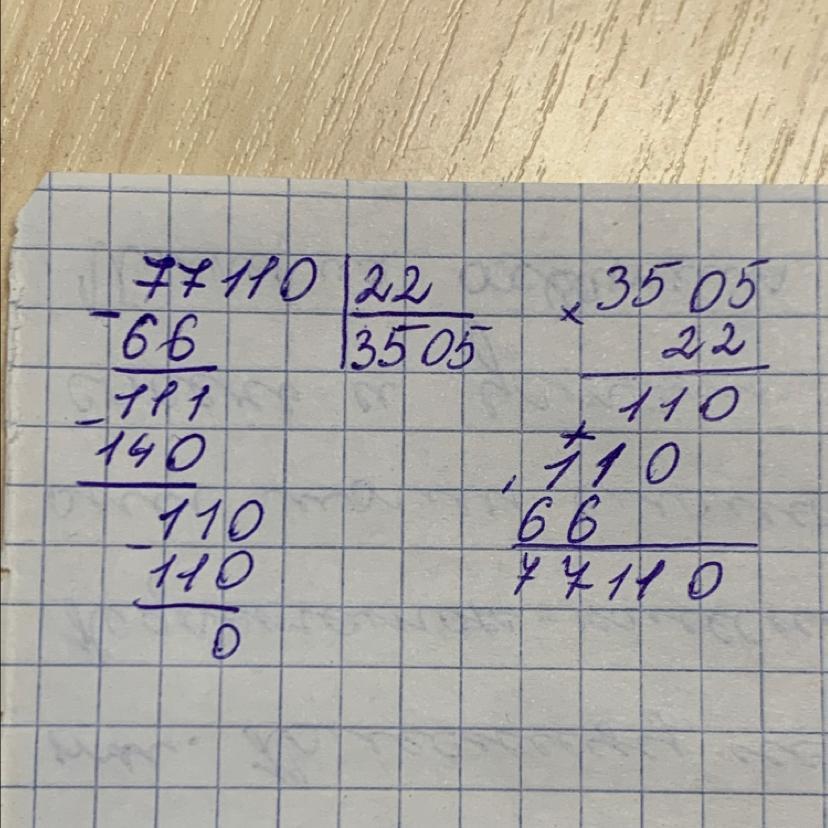 77110 22
- 66 3505
111
- 140
110
- 110
0
× 3505
22
110
+ 110
66
77110